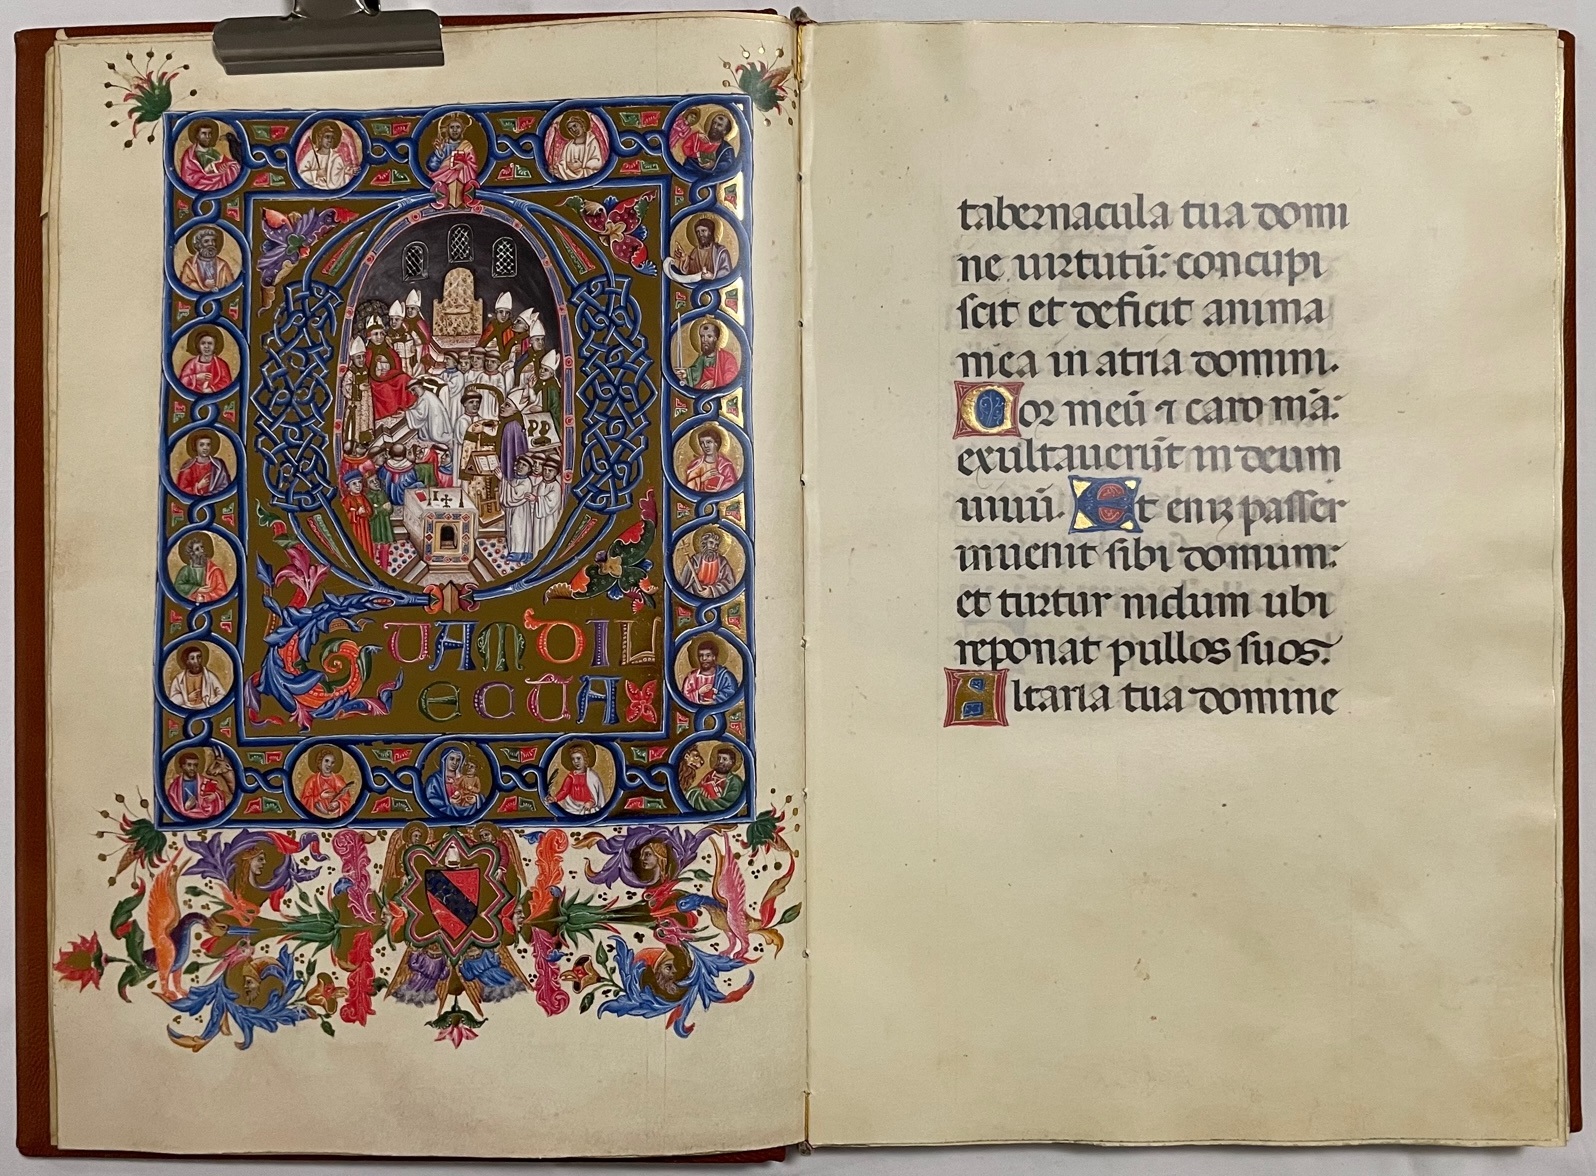 QUAM DIL
ECTA
tabernacula tua domi
ne uirtutū: concupi
scit et deficit anima
mea in atria domini.
Cor meū ⁊ caro mā:
exultauerūt in deum
uiuū. Et eniꝫ passer
inuenit sibi domum:
et turtur nidum ubi
reponat pullos suos:
Altaria tua domine